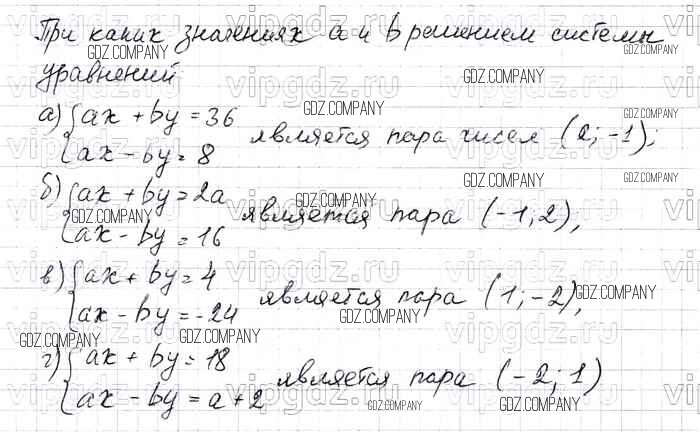 При каких значениях a и b решением системы
уравнений
а) { ax + by = 36
{ ax - by = 8 является пара чисел (2; -1);
б) { ax + by = 2a
{ ax - by = 16 является пара (-1; 2);
в) { ax + by = 4
{ ax - by = -24 является пара (1; -2);
г) { ax + by = 18
{ ax - by = a + 2 является пара (-2; 1)
GDZ.COMPANY
vipgdz.ru